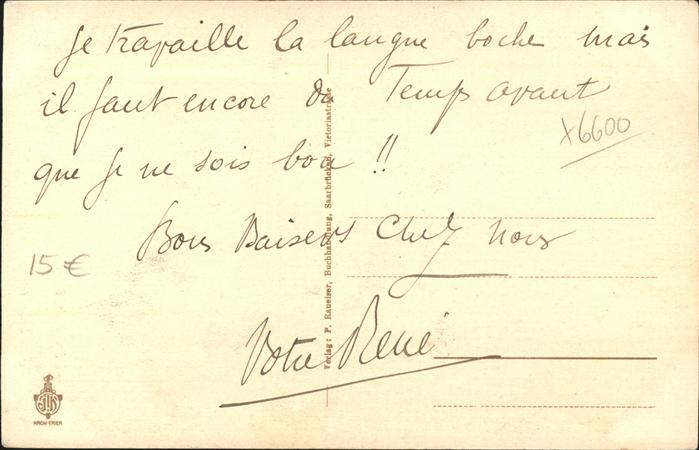 Je travaille la langue boche mais
il faut encore du Temps avant
que je ne sois bon !!
Bons Baisers Chez nous
Votre René
X6600
15 €
Verlag: P. Raueiser, Buchhandlung, Saarbrücken, Victoriastraße
KROH-TRIER